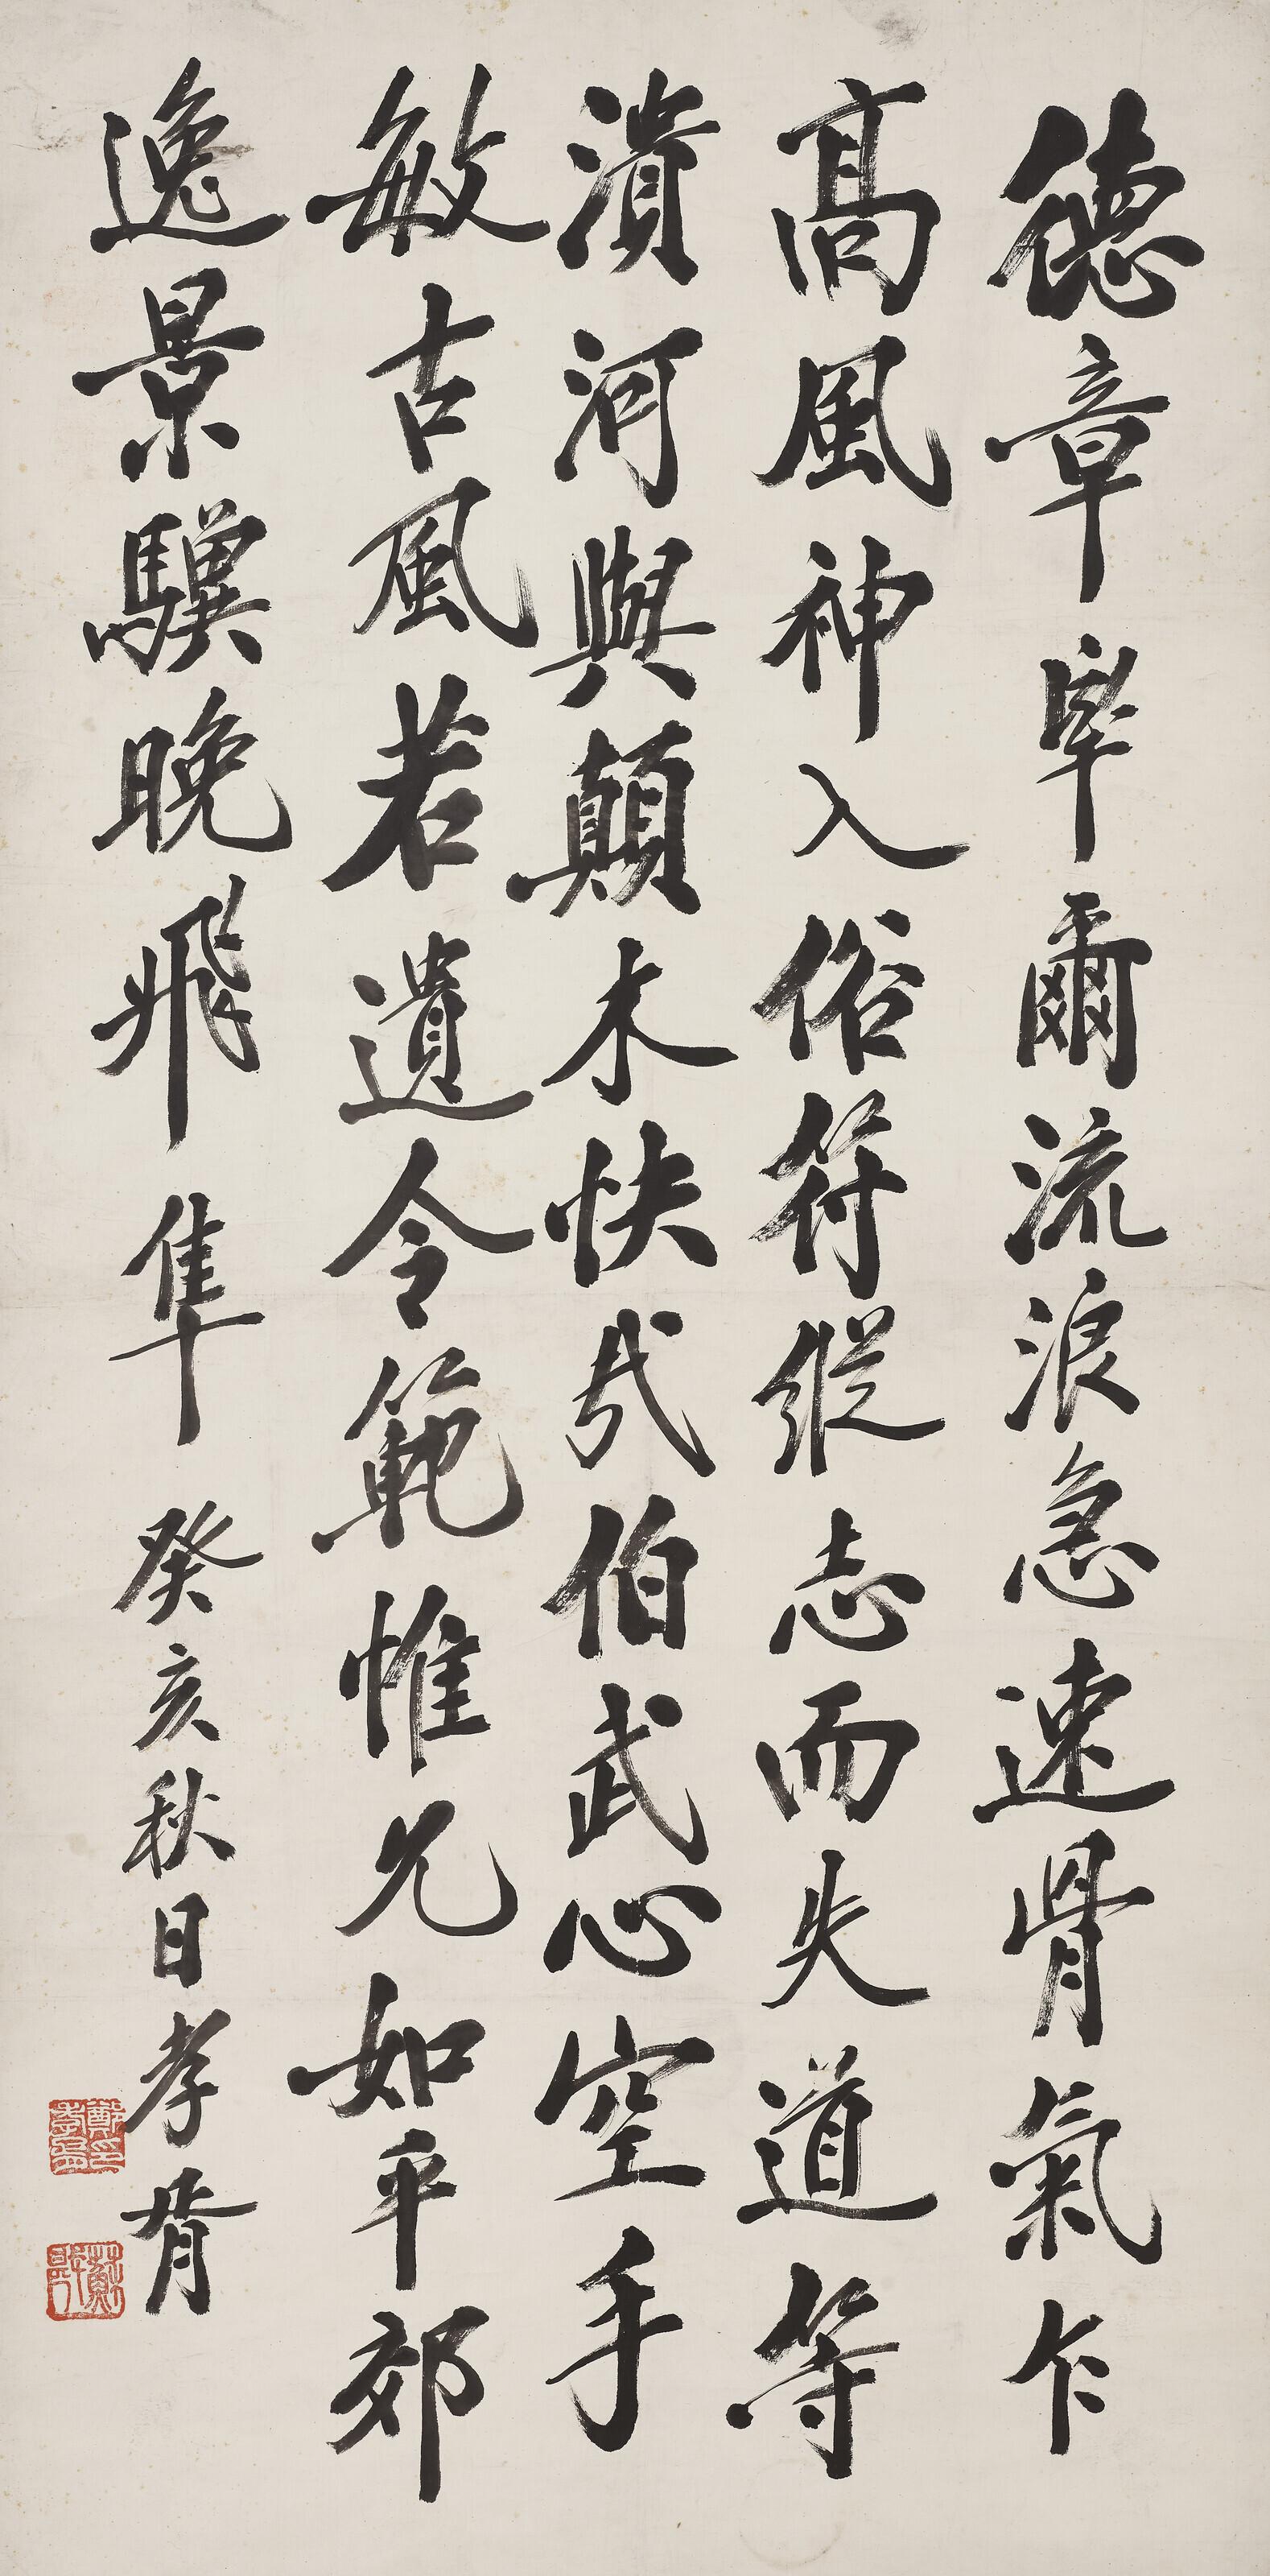 德章卓爾流浪急速骨氣乍
高風神入俗符縱志而失道等
潰河與顛木快哉伯武心空手
敏古風若遺令範惟允如平郊
逸景驥晚飛隼癸亥秋日孝胥